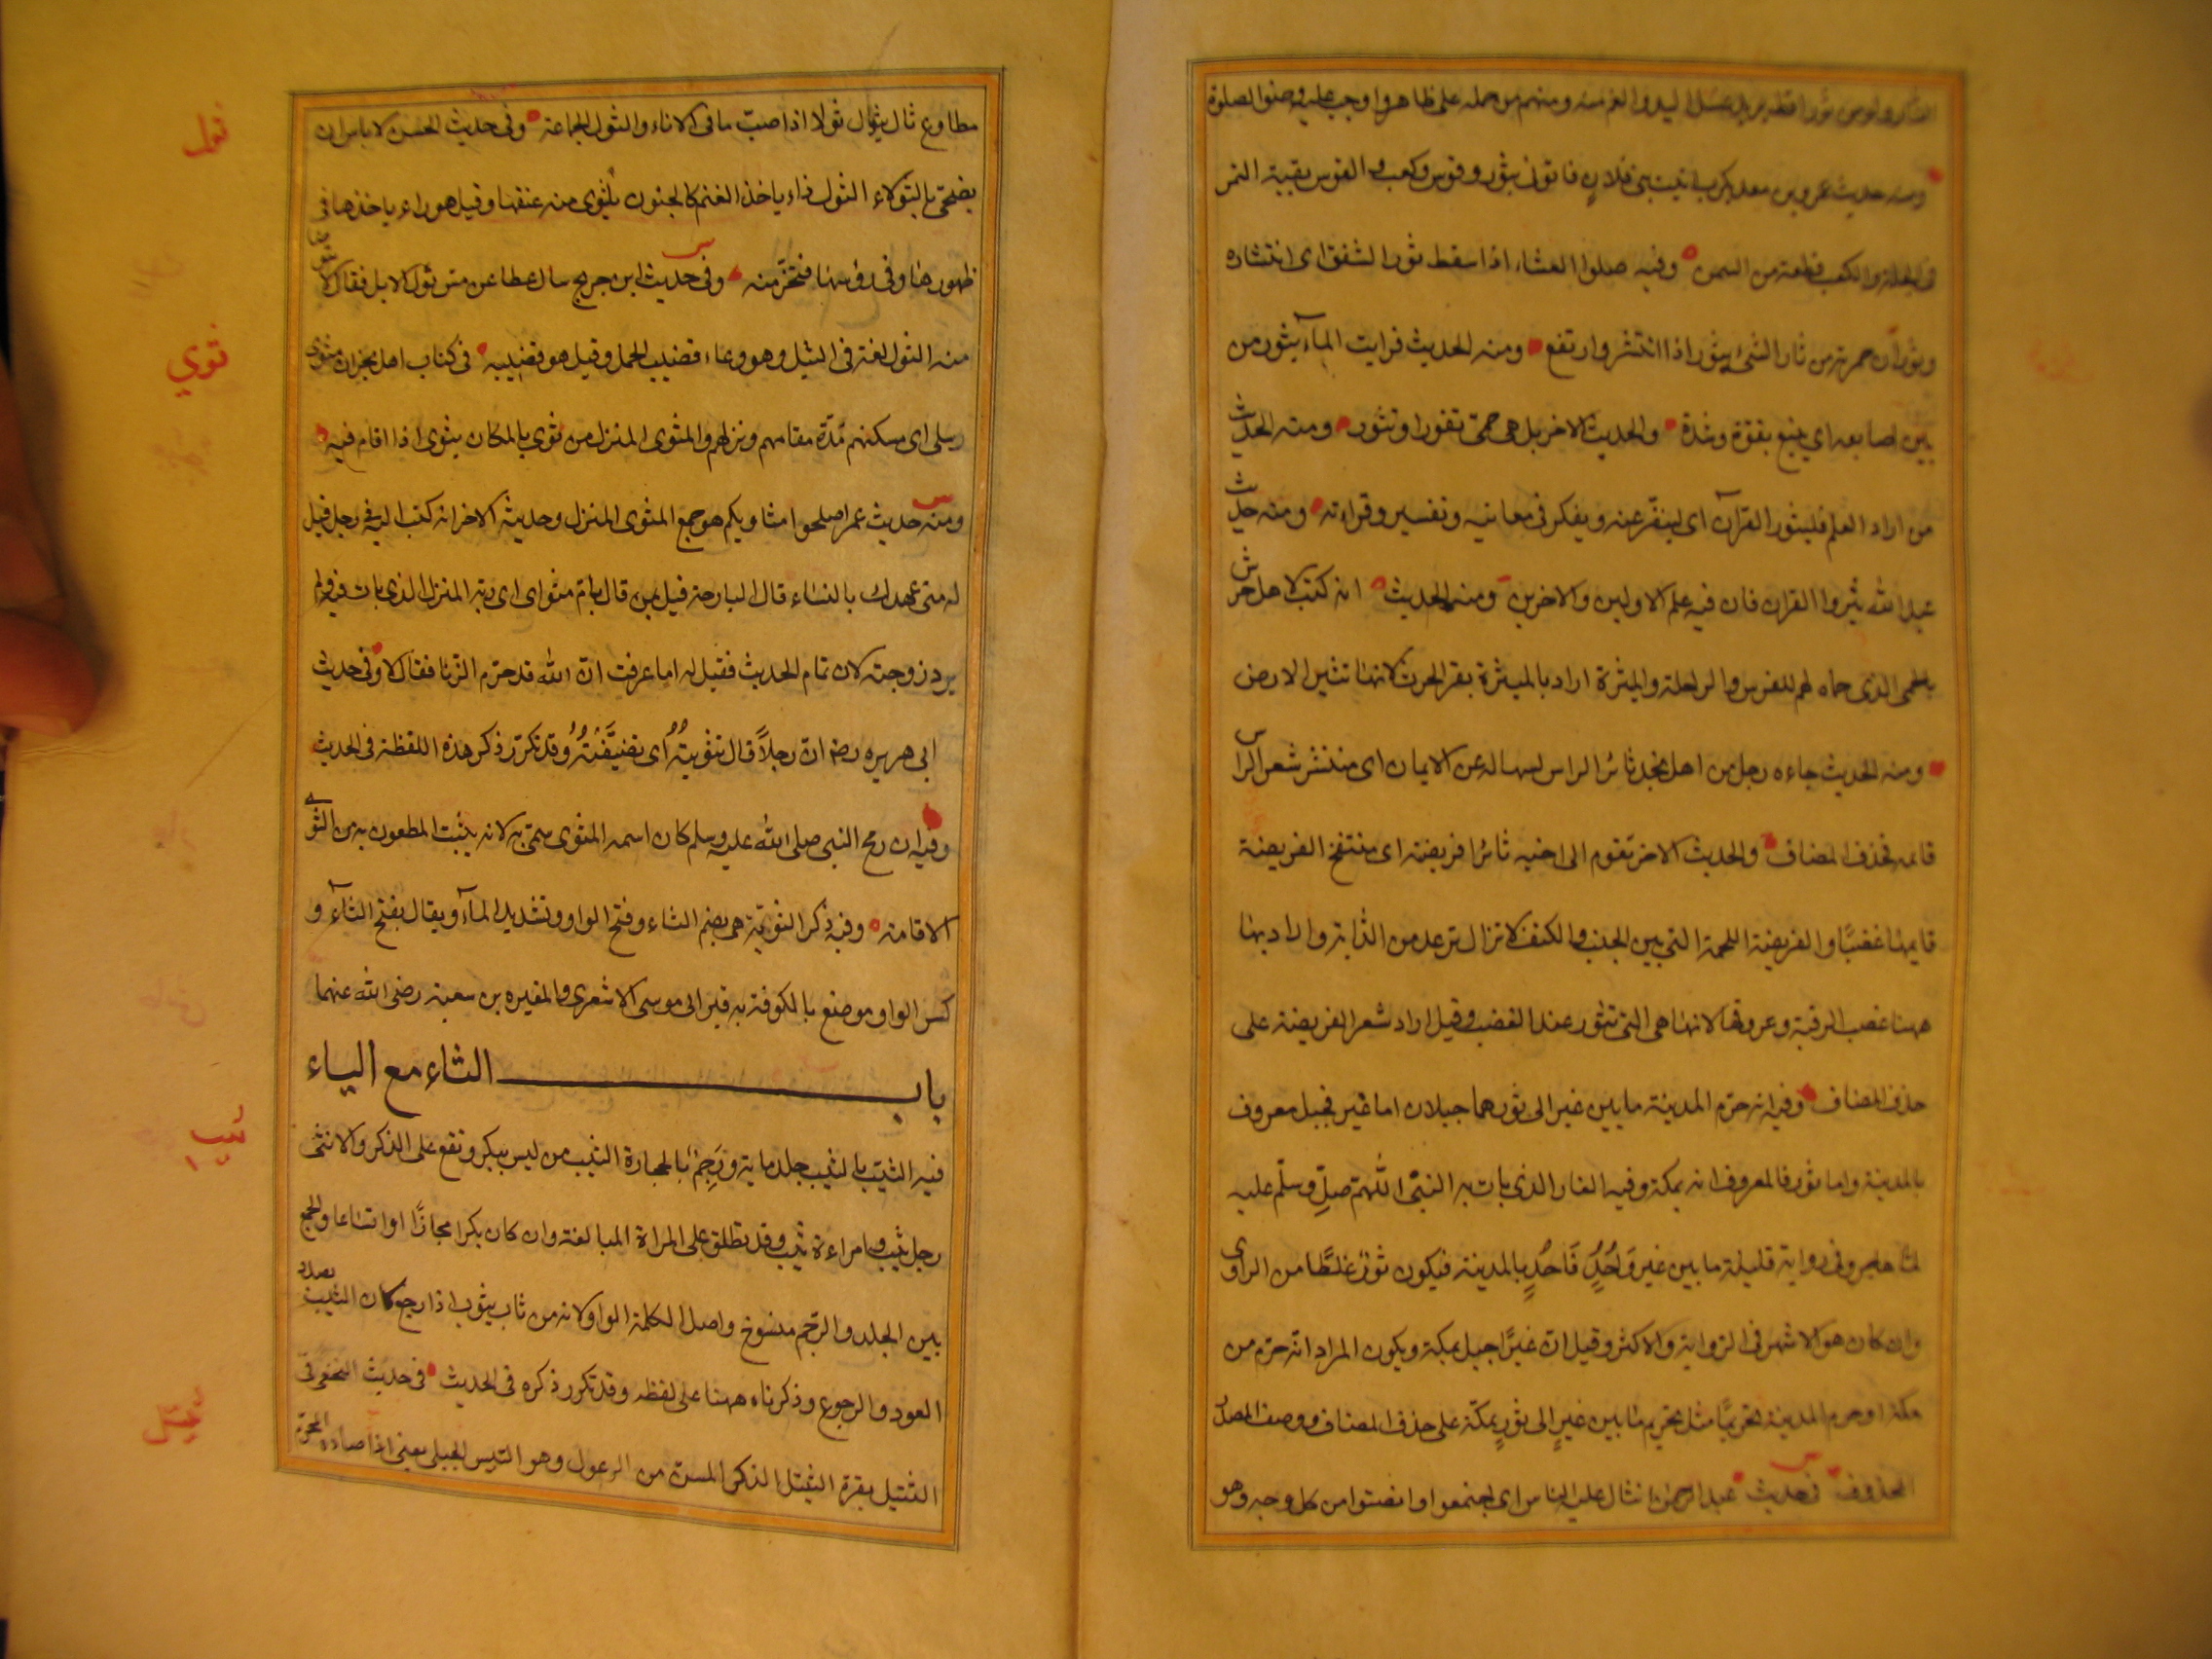 النار ولو من ثور اقط يريد غسل اليد والفم منه ومنهم من حمله على ظاهره واوجب عليه وضوا الصلوة
ومنه حديث عمرو بن معديكرب اتيت بنى فلان فاتونى بثور وقوس وكعب والقوس بقية التمر
فى الجلة والكعب قطعة من السمن وفيه صلوا العشاء اذا سقط ثور الشفق اى انتشاره
وثوران حمرته من ثار الشئ يثور اذا انتشر وارتفع ومنه الحديث فرايت المآء يثور من
بين اصابعه اى ينبع بقوة وشدة والحديث الاخر بل هى حمى تفور او تثور ومنه الحديث
من اراد العلم فليثور القرآن اى لينقر عنه ويفكر فى معانيه وتفسيره وقراءته ومنه حديث
عبد الله اثيروا القران فان فيه علم الاولين والاخرين ومنه الحديث انه كتب لاهل جرش
بالحمى الذى حماه لهم للفرس والراحلة والمثيرة اراد بالمثيرة بقر الحرث لانها تثير الارض
ومنه الحديث جاءه رجل من اهل نجد ثائر الراس يساله عن الايمان اى منتشر شعر الراس
قايمه فحذف المضاف والحديث الاخر تقوم الى اخيه ثائرا فريضته اى منتفخ الفريضة
قايمها غضبًا والفريضة اللحمة التى بين الجنب والكتف لا تزال ترعد من الدابة واراد بها
ههنا عصب الرقبة وعروقها لانها هى التى تثور عند الغضب وقيل اراد شعر الفريضة على
حذف المضاف وفيه انه حرم المدينة ما بين عير الى ثور هما جبلان اما عير فجبل معروف
بالمدينة واما ثور فالمعروف انه بمكة وفيه الغار الذى بات به النبى اللهم صل وسلم عليه
لما هاجر وفى رواية قليلة ما بين عير وَاُحُدٍ فَاُحُدٍ بالمدينة فيكون ثور غلطًا من الراوى
وان كان هو الاشهر فى الرواية والاكثر وقيل ان عيرًا جبل بمكة ويكون المراد انه حرم من
مكة او حرم المدينة تحريمًا مثل تحريم ما بين عيرٍ الى ثورٍ بمكة على حذف المضاف ووصف المصدر
المحذوف فى حديث عبد الرحمن انثال عليه الناس اى اجتمعوا وانصبوا من كل وجه وهو
مطاوع ثال يثول ثولا اذا صب ما فى الاناء والثول الجماعة وفى حديث الحسن لا باس ان
ثول
يضحى بالثولاء الثول داء ياخذ الغنم كالجنون يلتوى منه عنقها وقيل هو داء ياخذها فى
ظهورها وفى رؤسها فتخر منه وفى حديث ابن جريج سال عطا عن مس ثول الابل فقال لا يتوضا
منه الثول لغة فى الثيل وهو وعاء قضيب الجمل وقيل هو قضيبه فى كتاب اهل نجران مثوى
ثوي
رسلى اى مسكنهم مدة مقامهم ونزلهم والمثوى المنزل من ثوى بالمكان يثوى اذا اقام فيه
ومنه حديث عمر اصلحوا مثاويكم هو جمع المثوى المنزل وحديثه الاخر انه كتب اليه فى رجل قيل
له متى عهدك بالنساء قال البارحة قيل بمن قال بام مثواى اى ربة المنزل الذى بات فيه ولم
يرد زوجته لان تمام الحديث فقيل له اما عرفت ان الله قد حرم الزنا فقال لا وفى حديث
ابى هريره رضه ان رجلاً قال تثويتُهُ اى تضيَّفْتُهُ وقد تكرر ذكر هذه اللفظة فى الحديث
وفيه ان رمح النبى صلى الله عليه وسلم كان اسمه المثوى سمى به لانه يثبت المطعون به من الثوى
الاقامة وفيه ذكر الثوية هى بضم الثاء وفتح الواو وتشديد المآء ويقال بفتح الثآء و
كسر الواو موضع بالكوفة به قبر ابى موسى الاشعرى والمغيره بن سعبة رضى الله عنهما
باب الثاء مع الياء
فيه الثيب بالثيب جلد ماية ورَجمٌ بالحجارة الثيب من ليس ببكر وتقع على الذكر والانثى
ثيب
رجل ثيب وامراءة ثيب وقد تطلق على المراة البالغة وان كان بكرا مجازًا او اتساعا والجمع
بين الجلد والرجم منسوخ واصل الكلمة الواو لانه من ثاب يثوب اذا رجع كان الثيب بصدد
العود والرجوع وذكرناه ههنا على لفظه وقد تكرر ذكره فى الحديث فى حديث النخعى فى
الثيتل بقرة الثيتل الذكر المسن من الوعول وهو التيس الجبلى يعنى اذا صاده المحرم
ثيتل